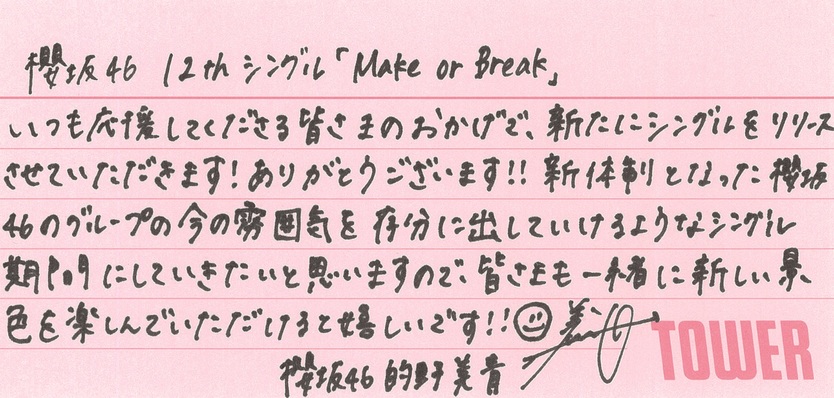 櫻坂46 12th シングル「Make or Break」
いつも応援してくださる皆さまのおかげで、新たにシングルをリリース
させていただきます！ありがとうございます!! 新体制となった櫻坂
46のグループの今の雰囲気を存分に出していけるようなシングル
期間にしていきたいと思いますので、皆さまも一緒に新しい景
色を楽しんでいただけると嬉しいです!!
櫻坂46 的野美青
TOWER